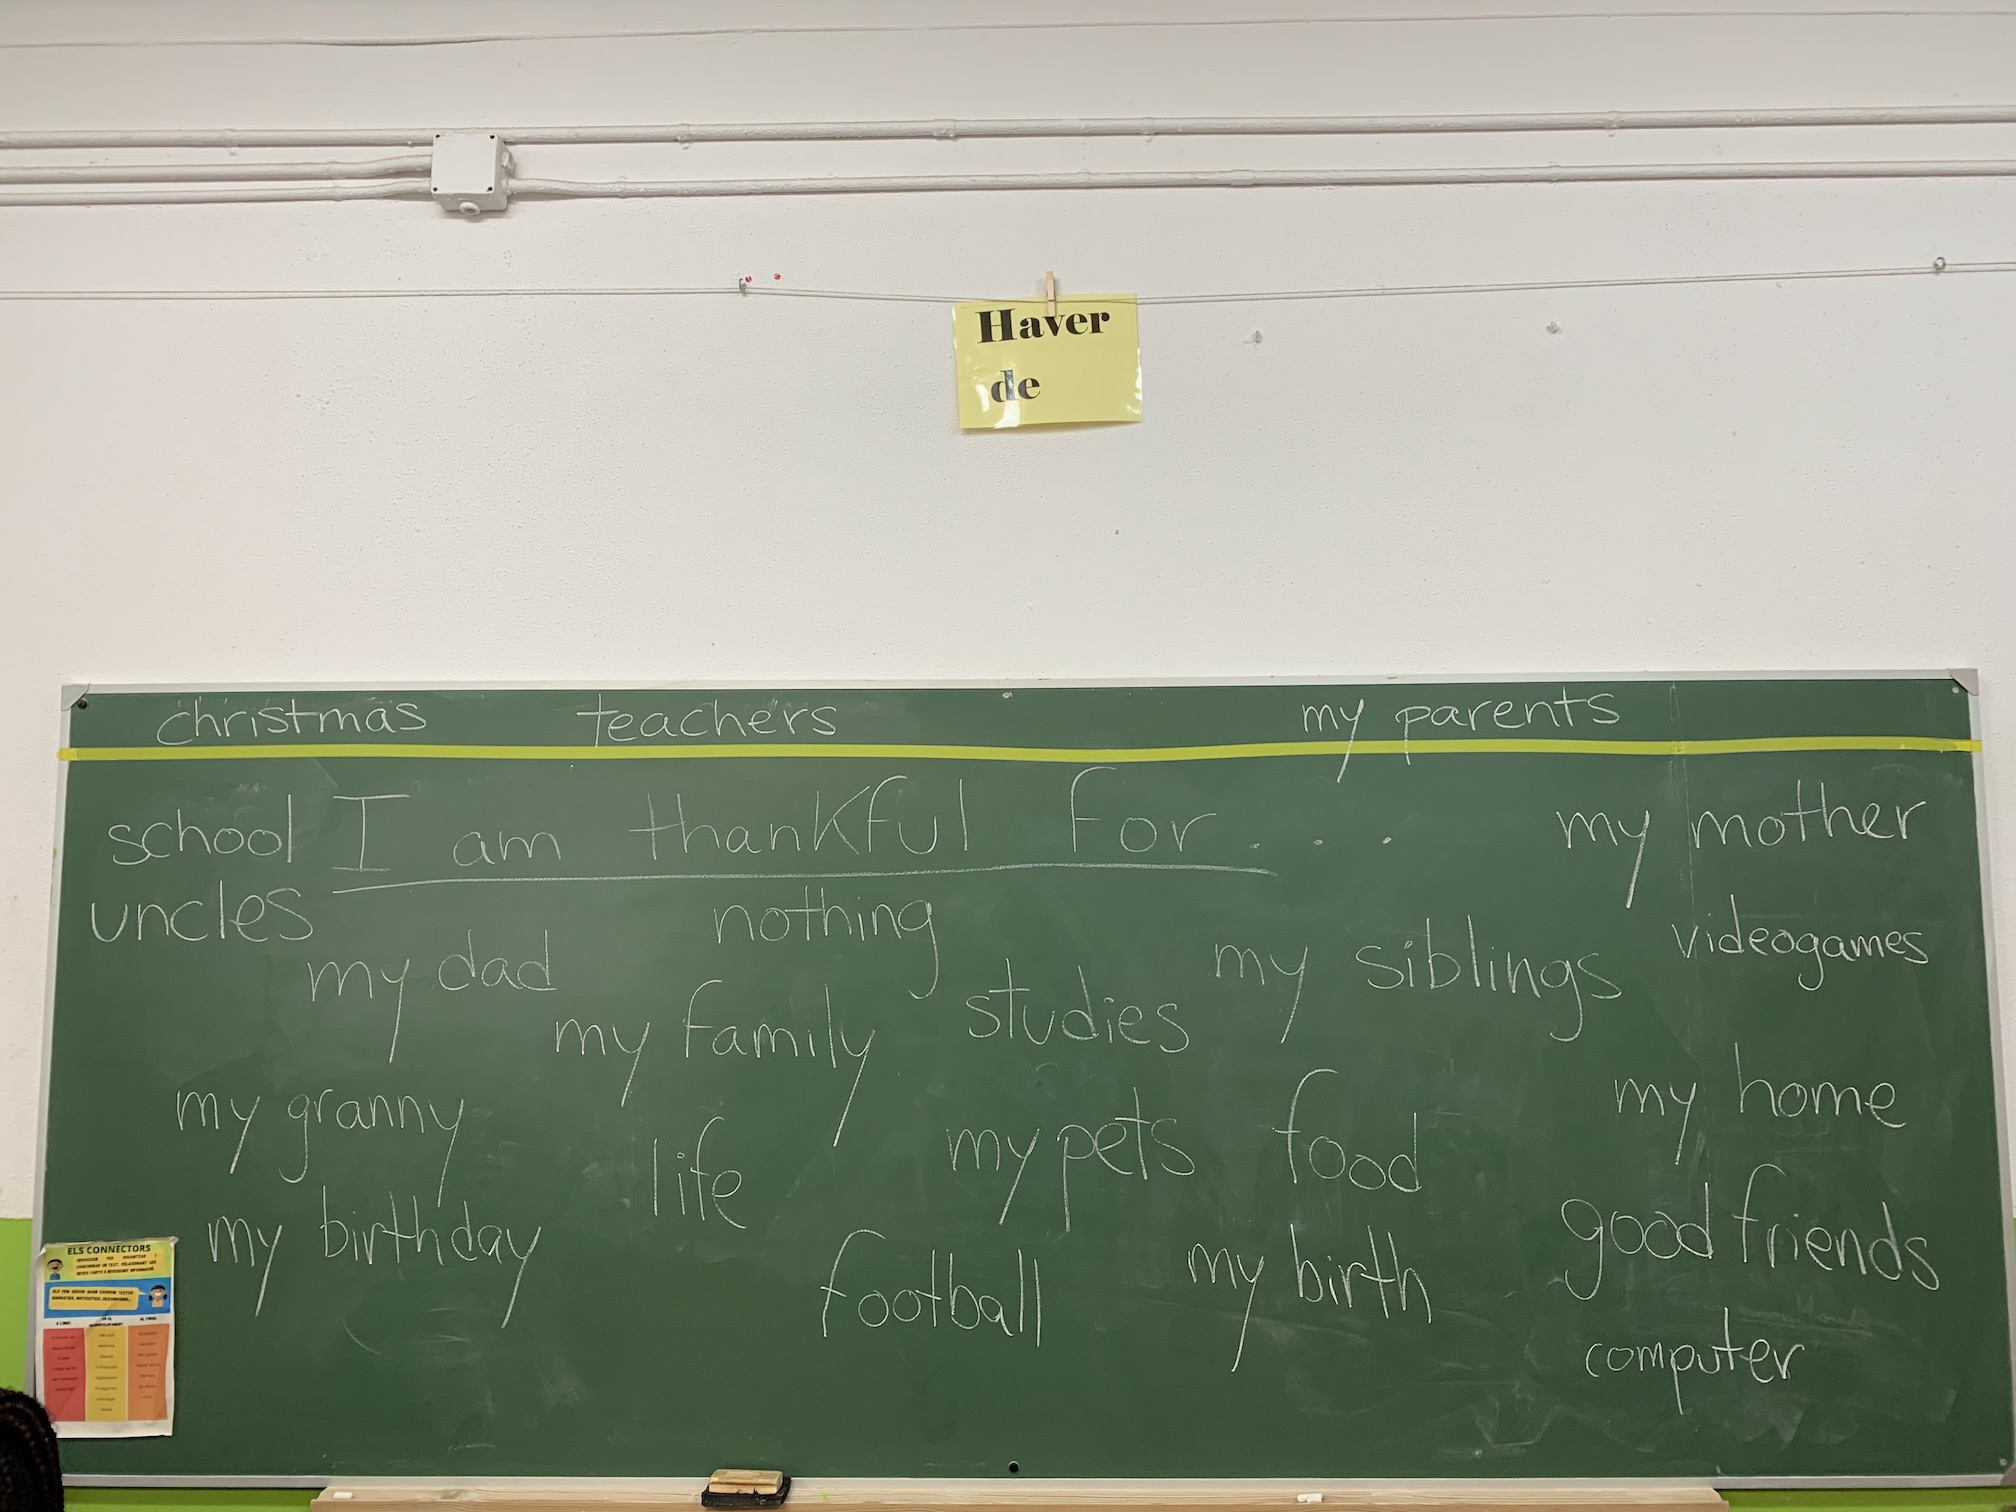 Haver
de
christmas teachers my parents
school I am thankful for.... my mother
uncles nothing videogames
my dad my siblings
my family studies
my granny my home
life my pets food
my birthday good friends
football my birth
computer
ELS CONNECTORS